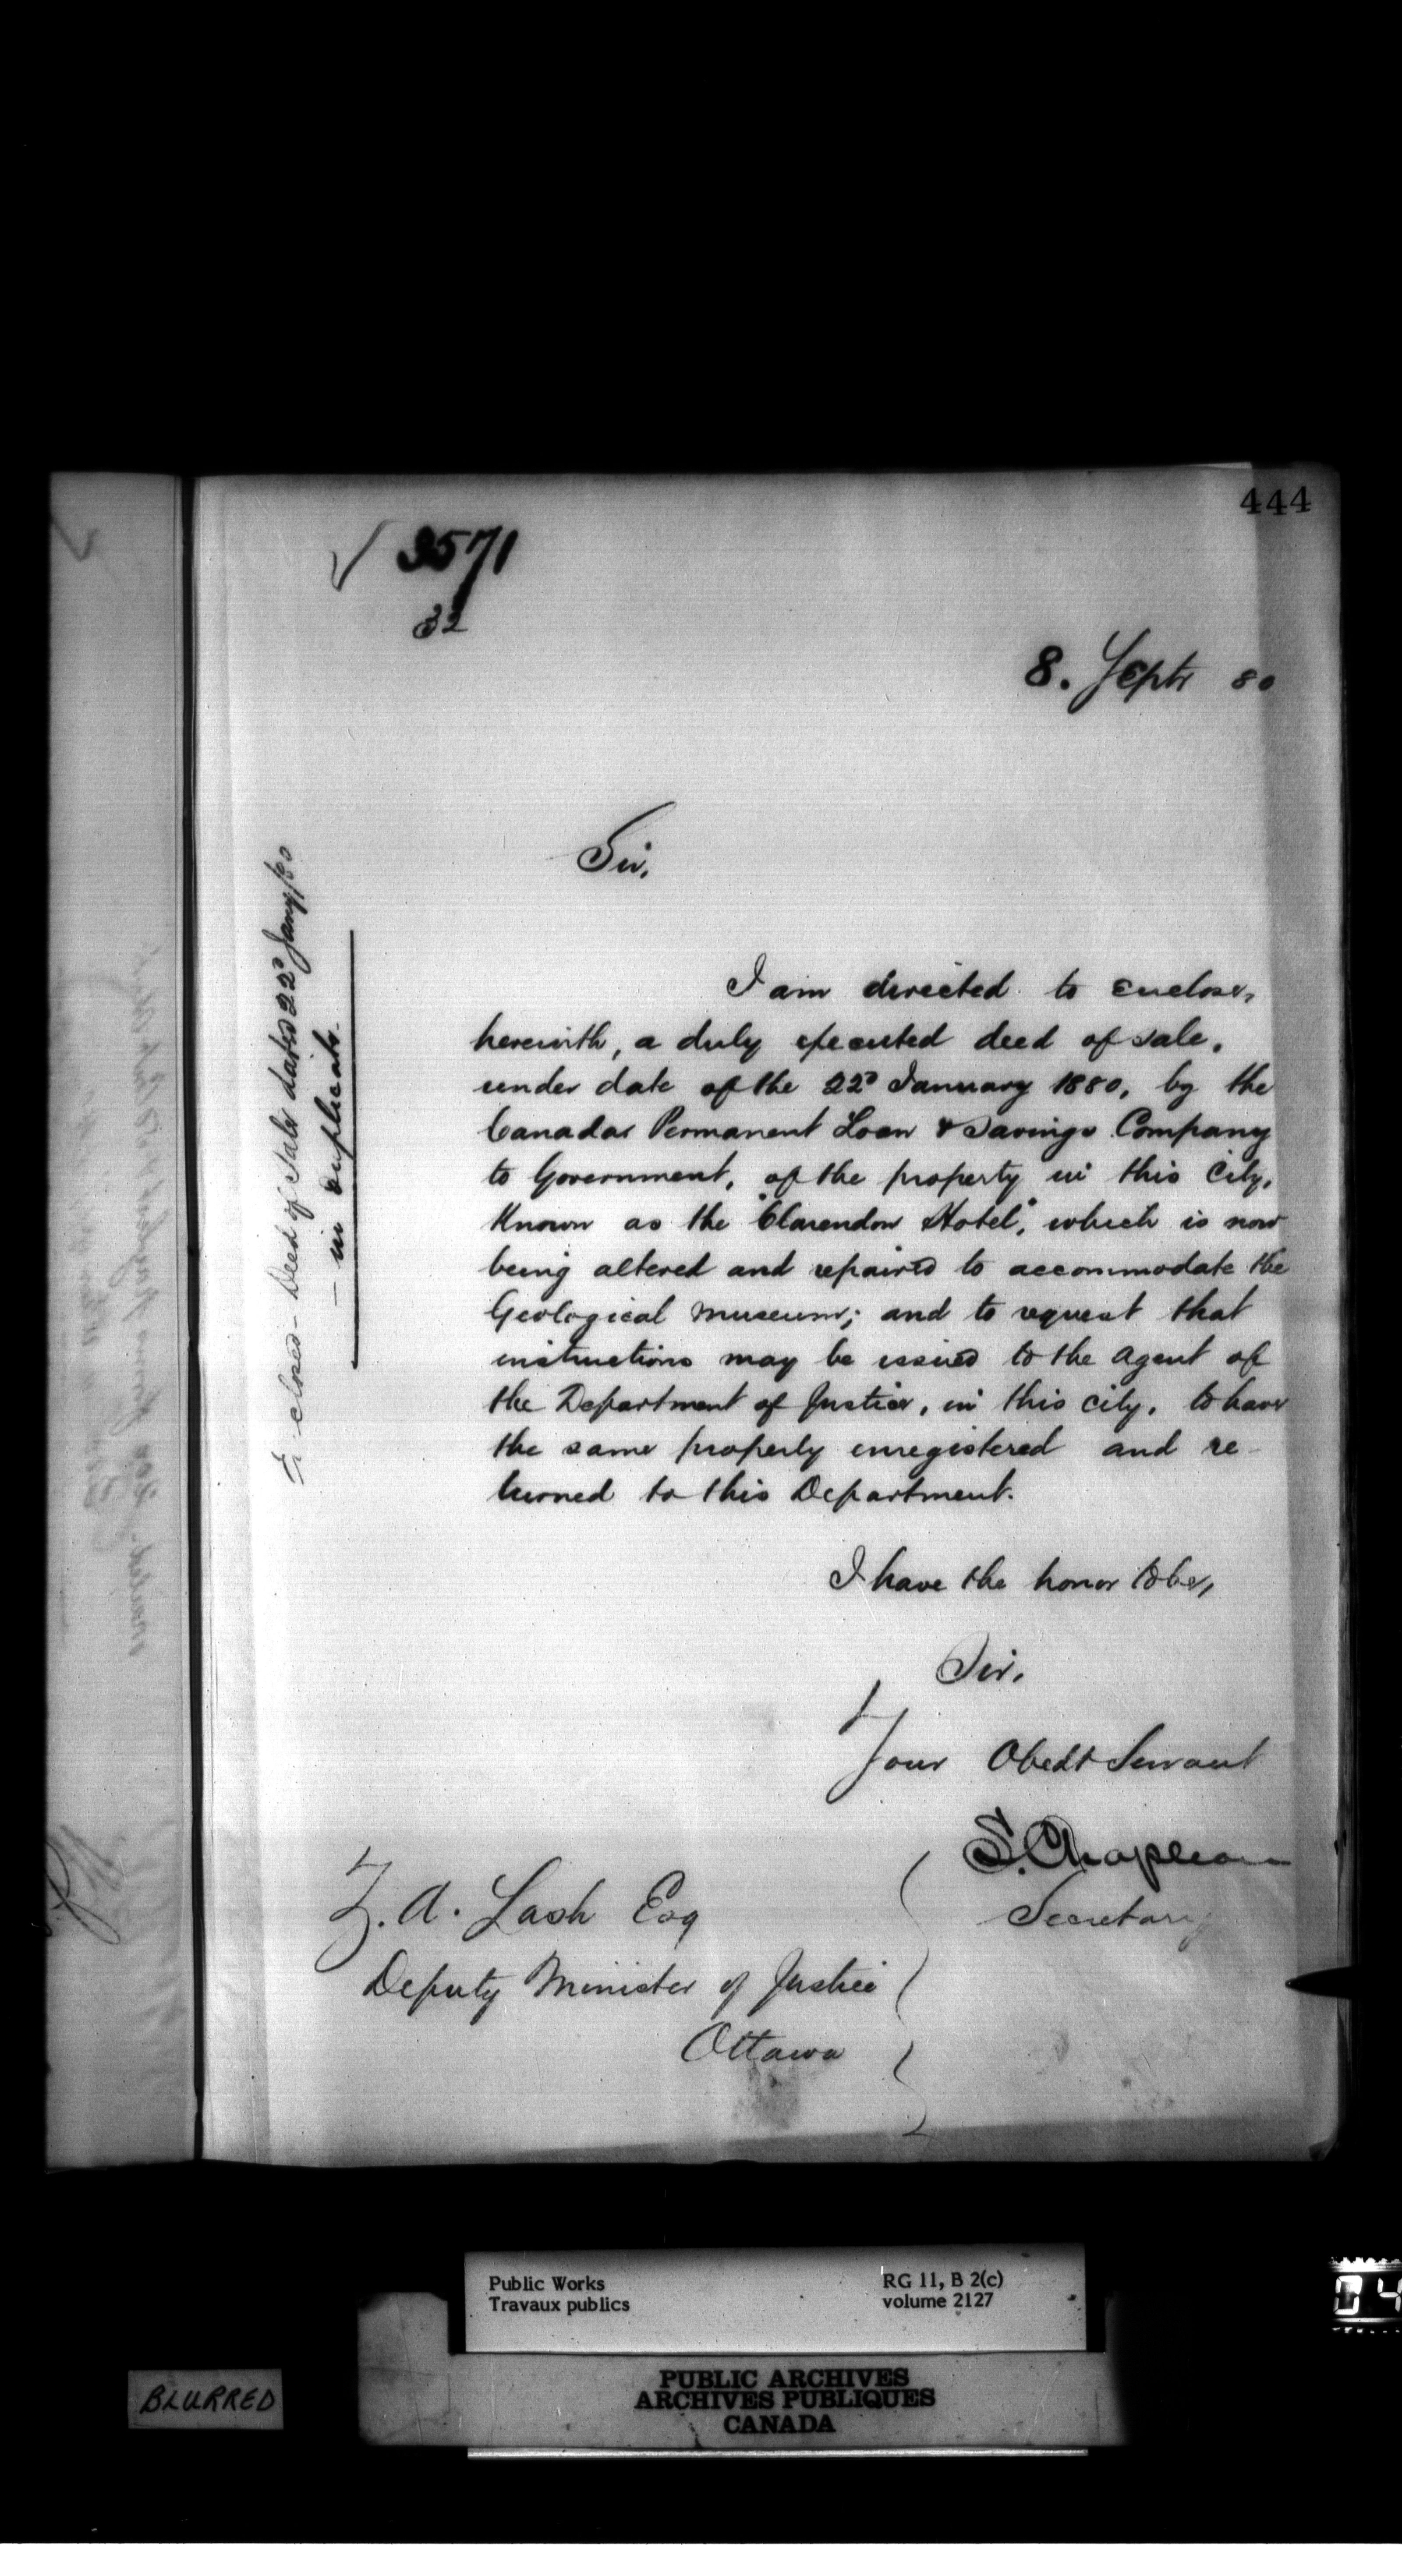 444
3571
32
8. Septr 80
Sir,
Enclosed - Deed of Sale dated 22d Jany/80
- in duplicate.
I am directed to enclose,
herewith, a duly executed deed of sale,
under date of the 22d January 1880, by the
Canada Permanent Loan & Savings Company
to Government, of the property in this City,
Known as the "Clarendon Hotel", which is now
being altered and repaired to accommodate the
Geological Museum; and to request that
instructions may be issued to the Agent of
the Department of Justice, in this city, to have
the same properly enregistered and re-
turned to this Department.
I have the honor to be,
Sir,
Your Obedt Servant
S. Chapleau
Secretary
Z. A. Lash Esq
Deputy Minister of Justice
Ottawa
Public Works
Travaux publics
RG 11, B 2(c)
volume 2127
BLURRED
PUBLIC ARCHIVES
ARCHIVES PUBLIQUES
CANADA
04